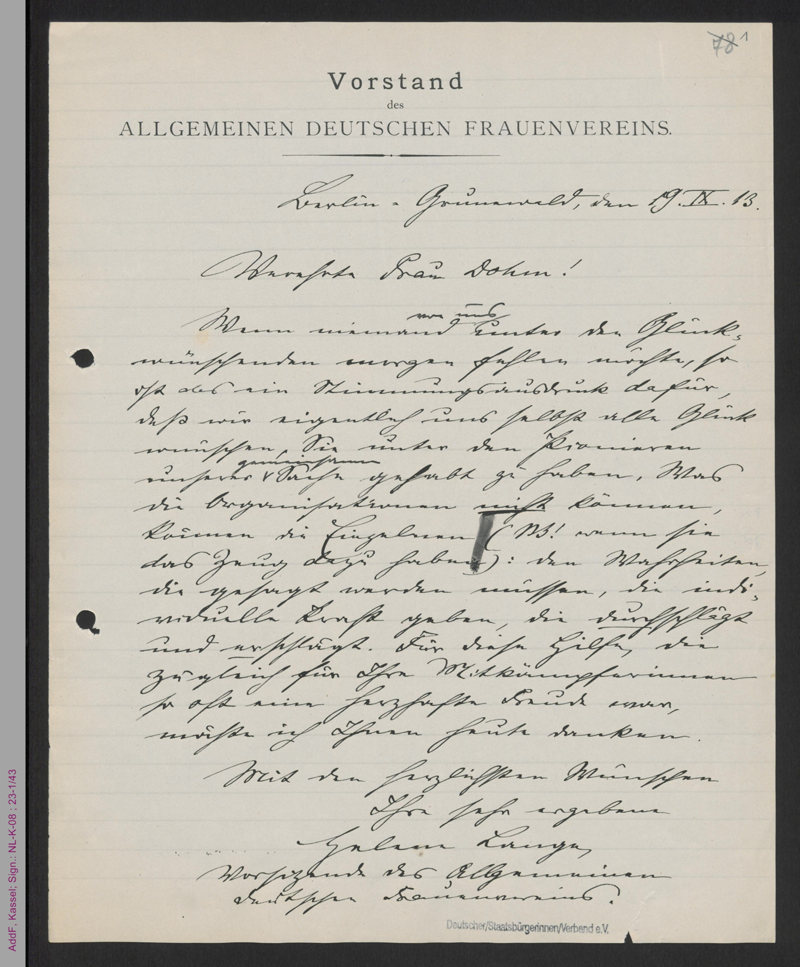 78 1
Vorstand
des
ALLGEMEINEN DEUTSCHEN FRAUENVEREINS.
Berlin-Grunewald, den 19. IX. 13.
Verehrte Frau Dohm!
Wenn niemand von uns unter den Glück-
wünschenden morgen fehlen möchte, so
ist das ein Stimmungsausdruck dafür,
daß wir eigentlich uns selbst alle Glück
wünschen, Sie unter den Pionieren
unserer gemeinsamen Sache gehabt zu haben. Was
die Organisationen nicht können,
können die Einzelnen (NB! wenn sie
das Zeug dazu haben): den Wahrheiten,
die gesagt werden müssen, die indi-
viduelle Kraft geben, die durchschlägt
und erschlägt. Für diese Hilfe, die
zugleich für Ihre Mitkämpferinnen
so oft eine herzhafte Freude war,
möchte ich Ihnen heute danken.
Mit den herzlichsten Wünschen
Ihre sehr ergebene
Helene Lange,
Vorsitzende des Allgemeinen
Deutschen Frauenvereins.
Deutscher/Staatsbürgerinnen/Verband e.V.
AddF, Kassel; Sign.: NL-K-08 ; 23-1/43